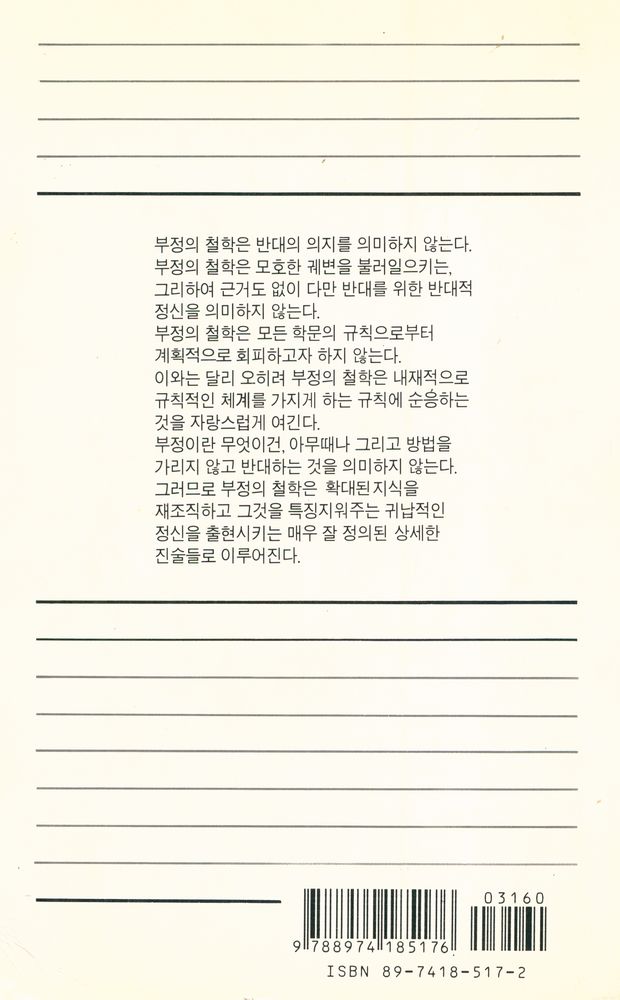 부정의 철학은 반대의 의지를 의미하지 않는다.
부정의 철학은 모호한 궤변을 불러일으키는,
그리하여 근거도 없이 다만 반대를 위한 반대적
정신을 의미하지 않는다.
부정의 철학은 모든 학문의 규칙으로부터
계획적으로 회피하고자 하지 않는다.
이와는 달리 오히려 부정의 철학은 내재적으로
규칙적인 체계를 가지게 하는 규칙에 순응하는
것을 자랑스럽게 여긴다.
부정이란 무엇이건, 아무때나 그리고 방법을
가리지 않고 반대하는 것을 의미하지 않는다.
그러므로 부정의 철학은 확대된 지식을
재조직하고 그것을 특징지워주는 귀납적인
정신을 출현시키는 매우 잘 정의된 상세한
진술들로 이루어진다.
03160
9 788974 185176
ISBN 89-7418-517-2